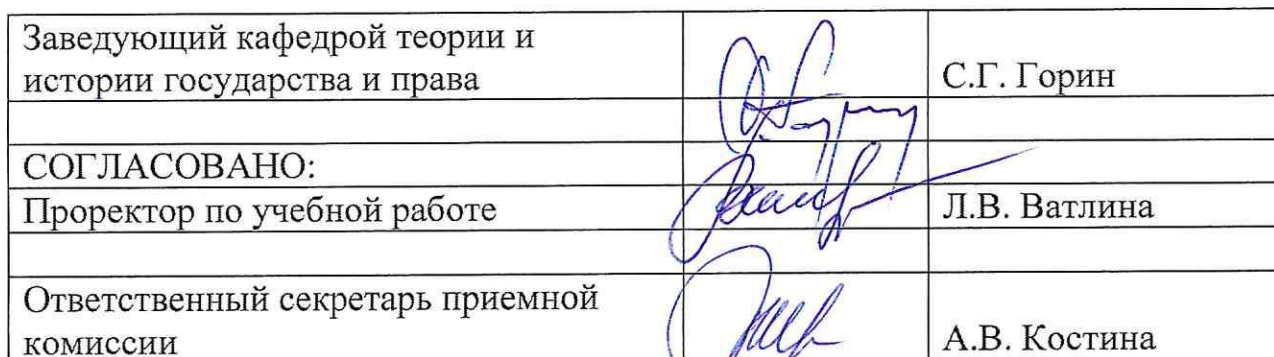 Заведующий кафедрой теории и
истории государства и права
С.Г. Горин
СОГЛАСОВАНО:
Проректор по учебной работе
Л.В. Ватлина
Ответственный секретарь приемной
комиссии
А.В. Костина